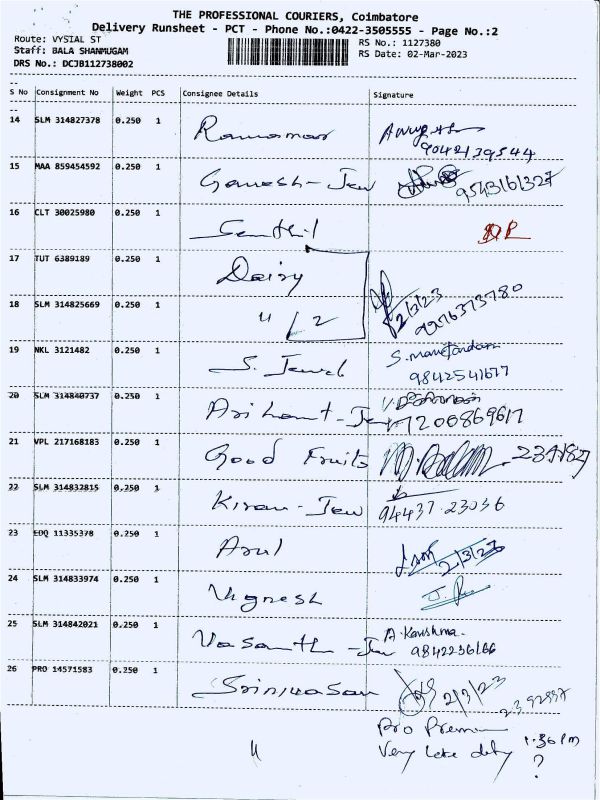 THE PROFESSIONAL COURIERS, Coimbatore
Delivery Runsheet - PCT - Phone No.:0422-3505555 - Page No.:2
Route: VYSIAL ST
RS No.: 1127380
Staff: BALA SHANMUGAM
RS Date: 02-Mar-2023
DRS No.: DCJB112738002
S No Consignment No Weight PCS Consignee Details Signature
14 SLM 314827378 0.250 1
9042139544
15 MAA 859454592 0.250 1 Ganesh-Jew 9543161327
16 CLT 30025980 0.250 1 Senthil
17 TUT 6389189 0.250 1 Daisy
18 SLM 314825669 0.250 1 " /2 2/3/23
19 NKL 3121482 0.250 1 S. Jewel
9842541677
20 SLM 314840737 0.250 1 Arihant-Jew 7200869617
21 VPL 217168183 0.250 1 Good Fruits
22 SLM 314832815 0.250 1 Kiran-Jew 94437 23036
23 EDQ 11335378 0.250 1 Arul 2/3/23
24 SLM 314833974 0.250 1 Vignesh
25 SLM 314842021 0.250 1 Vasanth-Jew A. Karishma
9842236166
26 PRO 14571583 0.250 1 Srinivasan 2/3/23
Pro Premium
Very Late 1:36 Pm
?